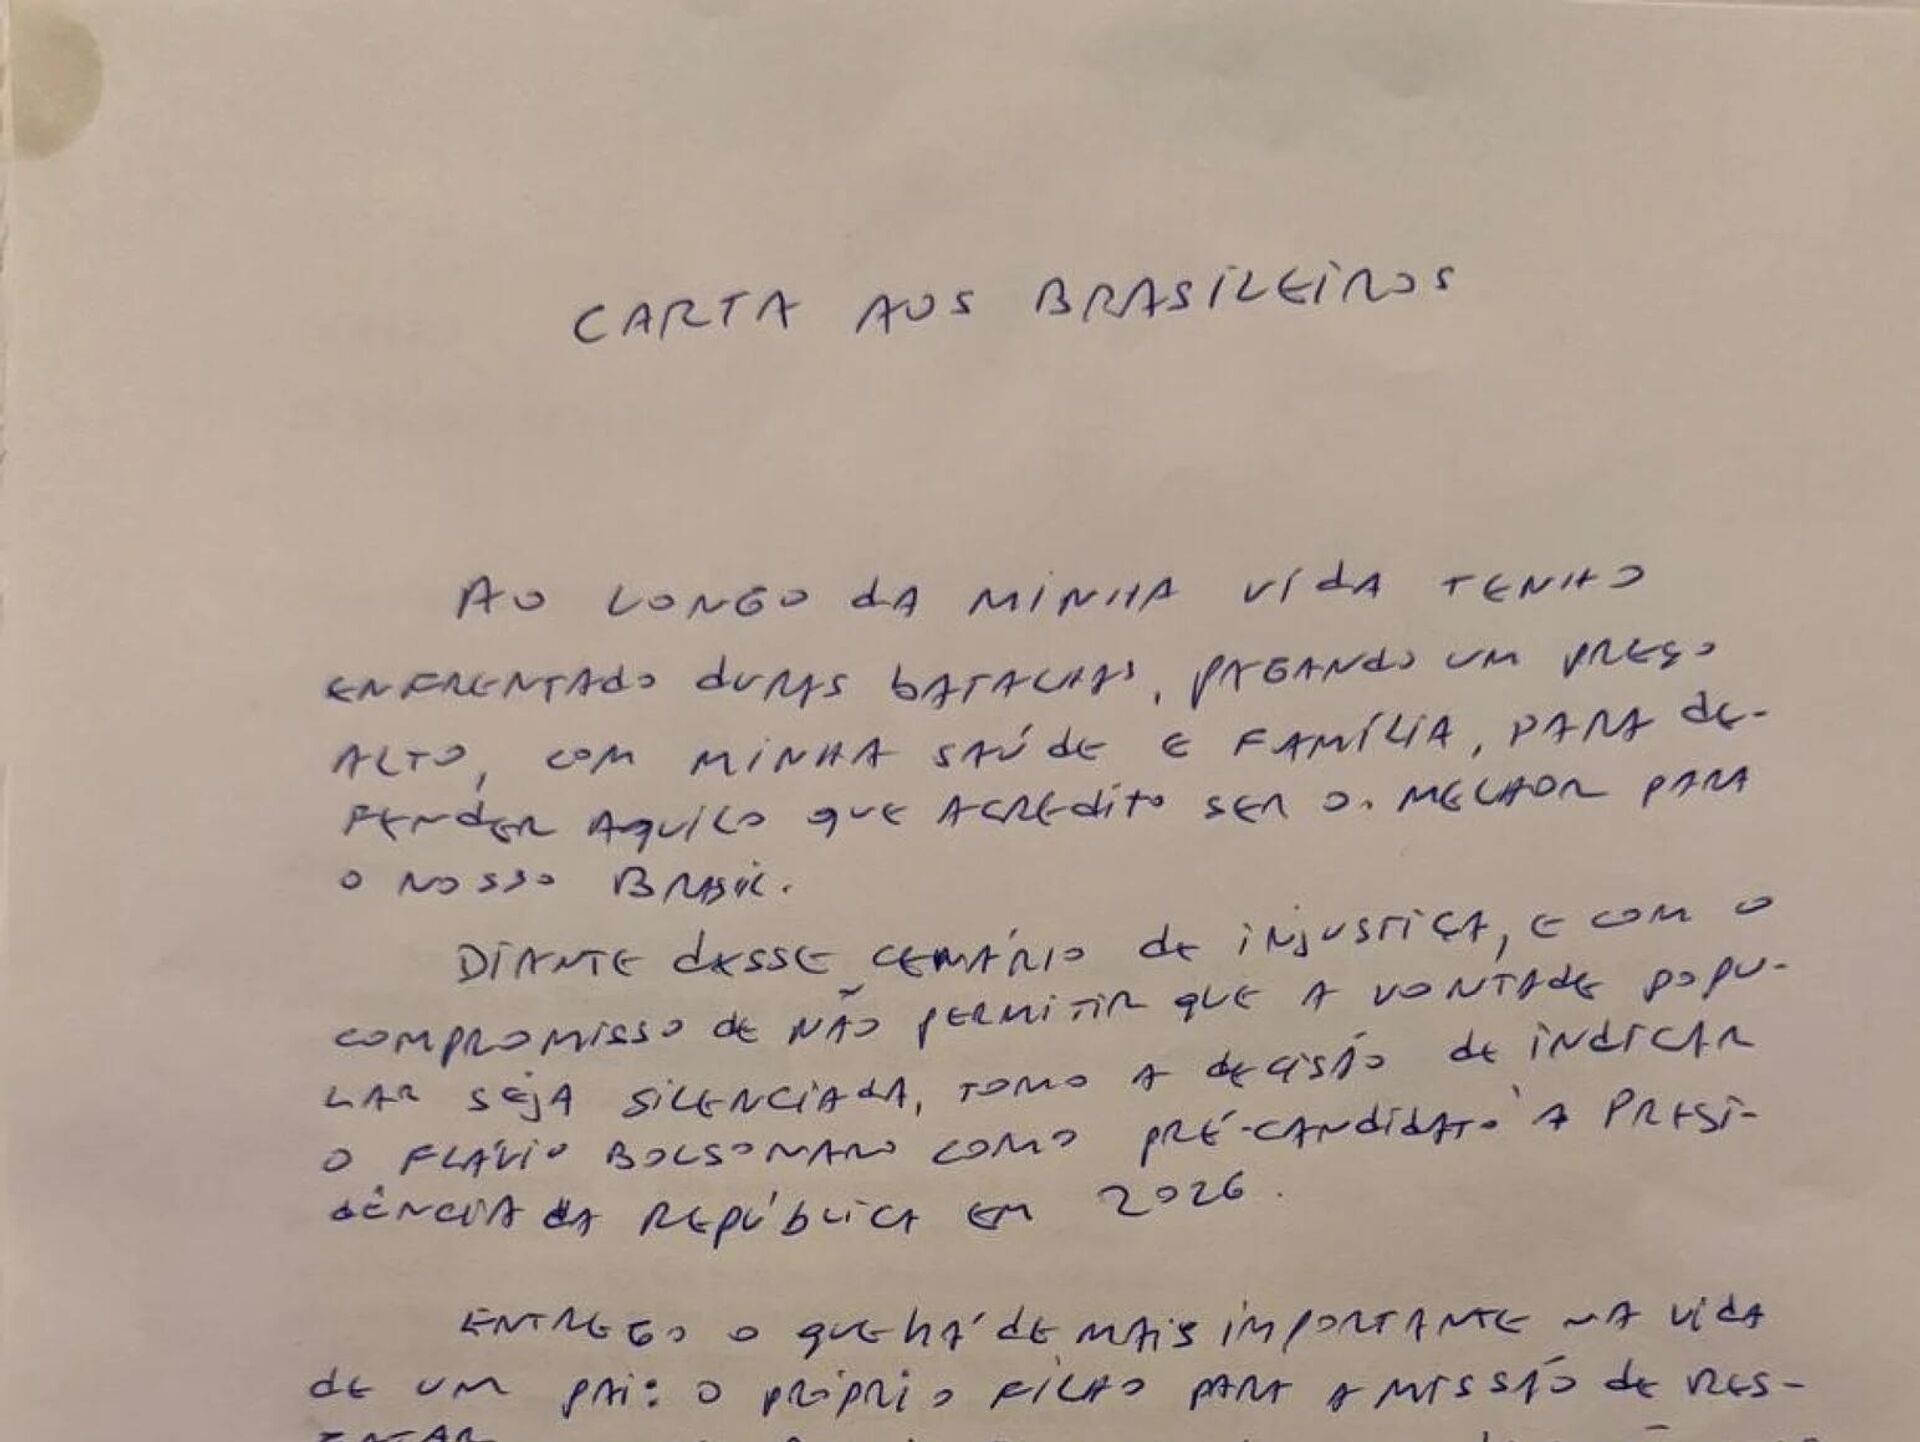 CARTA AOS BRASILEIROS
AO LONGO DA MINHA VIDA TENHO
ENFRENTADO DURAS BATALHAS, PAGANDO UM PREÇO
ALTO, COM MINHA SAÚDE E FAMÍLIA, PARA DE-
FENDER AQUILO QUE ACREDITO SER O MELHOR PARA
O NOSSO BRASIL.
DIANTE DESSE CENÁRIO DE INJUSTIÇA, E COM O
COMPROMISSO DE NÃO PERMITIR QUE A VONTADE POPU-
LAR SEJA SILENCIADA, TOMO A DECISÃO DE INDICAR
O FLÁVIO BOLSONARO COMO PRÉ-CANDIDATO À PRESI-
DÊNCIA DA REPÚBLICA EM 2026.
ENTREGO O QUE HÁ DE MAIS IMPORTANTE NA VIDA
DE UM PAI: O PRÓPRIO FILHO PARA A MISSÃO DE RES-